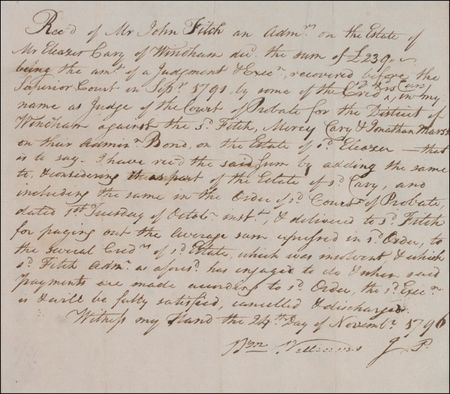 Rec'd of Mr John Fitch an Adm.r on the Estate of
Mr Eleazer Cary of Windham dec.d the sum of £239
being the am.t of a Judgment & Exec.n recovered before the
Superior Court in Sep.r 1791 by some of the Cred.rs in my
name as Judge of the Court of Probate for the District of
Windham against the s.d Fitch, Mercy Cary & Jonathan
on their Admin.n Bond, on the Estate of s.d Eleazer — that
is to say. I have rec.d the said sum by adding the same
to, & considering it as part of the Estate of s.d Cary, and
including the same in the Order of s.d Court of Probate,
dated 1st Tuesday of Octob.r inst.t, & delivered to s.d Fitch
for paying out the Average sum in s.d Order, to
the several Cred.rs of s.d Estate, which was insolvent & which
s.d Fitch Adm.r as afores.d has engaged to do & when said
payments are made according to s.d Order, the s.d Exec.n
is & will be fully satisfied, cancelled & discharged.
Witness my Hand the 24.th Day of Novemb.r 1796
Wm Williams J. P.